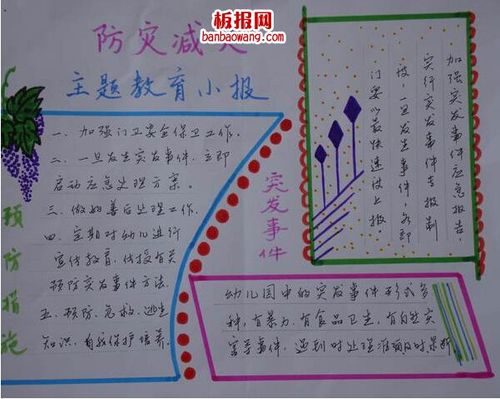 板报网
banbaowang.com
防灾减灾
主题教育小报
一、加强门卫安全保卫工作。
二、一旦发生突发事件,立即
启动应急处理方案。
三、做好善后处理工作。
四、定期对幼儿进行
宣传教育,传授有关
预防突发事件方法。
五、预防、急救、逃生
知识,自我保护培养。
预防措施
突发事件
加强突发事件应急报告,
实行突发事件专报制
度,一旦发生事件,各部
门要以最快速度上报。
幼儿园中的突发事件形式多
种,有暴力,有食品卫生,有自然灾
害等事件,遇到时处理准确及时果断